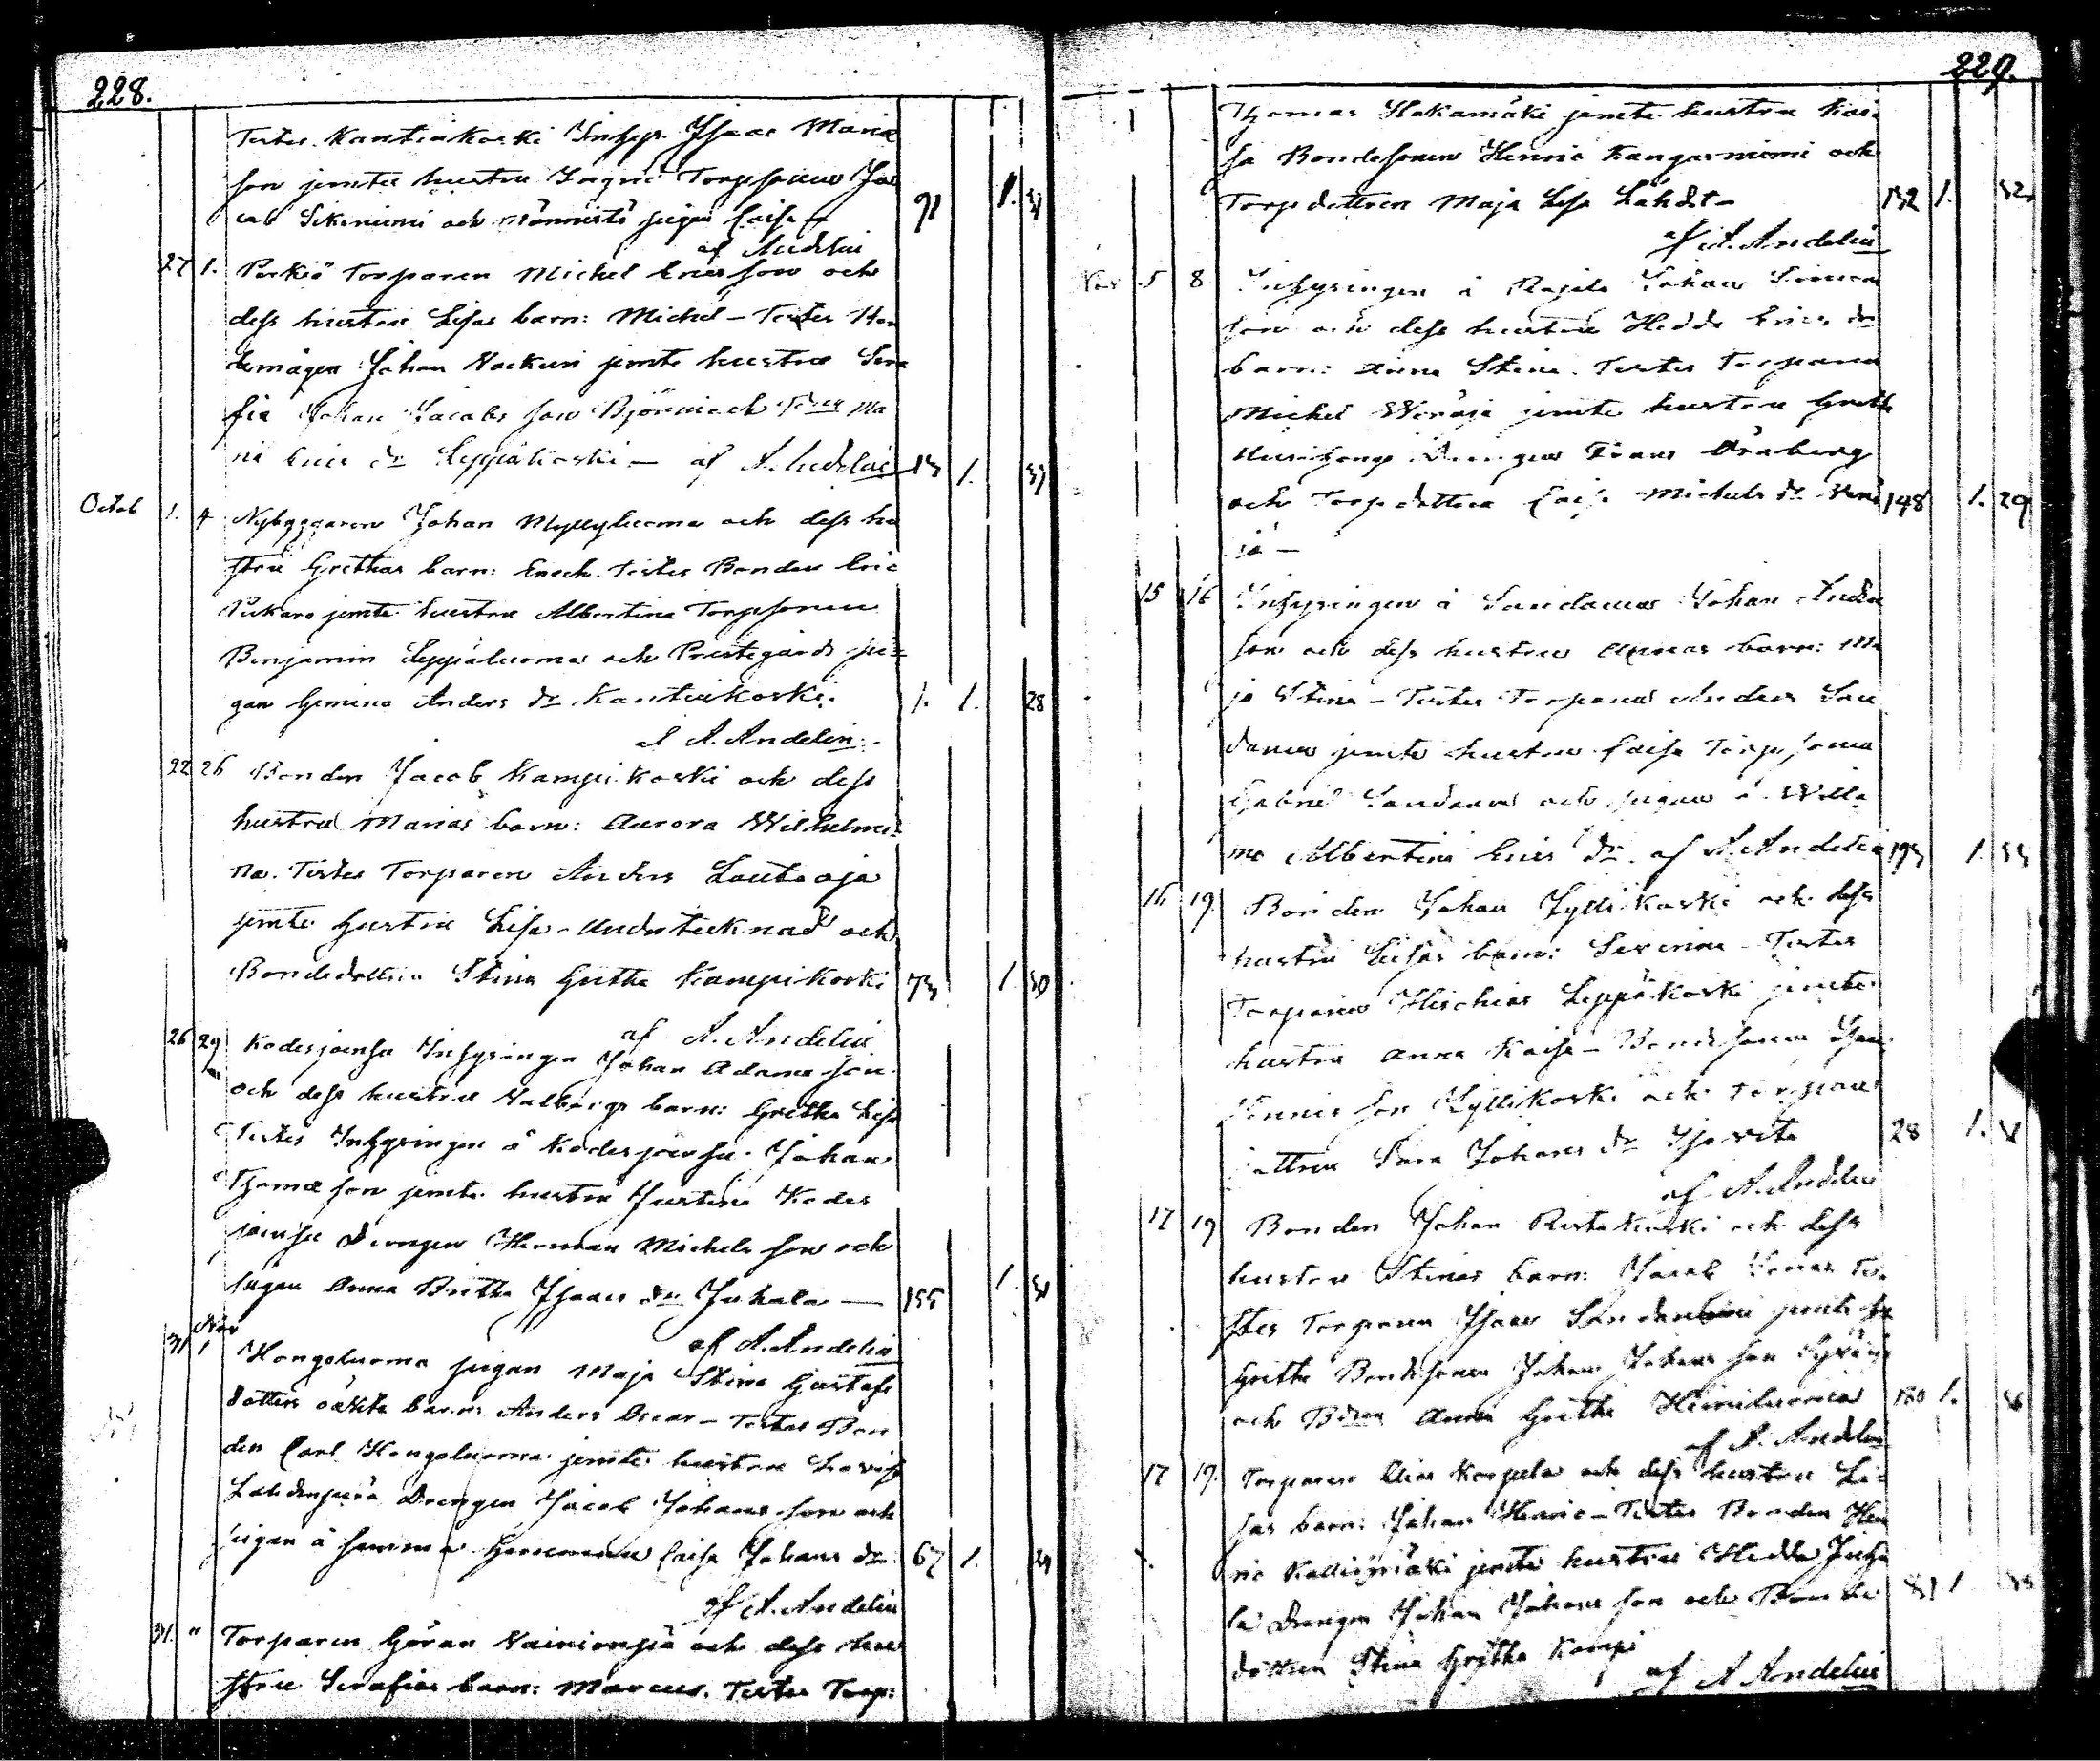 228.
Testes Kantiakoski Inhys. Isaac Maria
son jemte hustru Ingrid Torpsonen Ja
cab Sikeniemi och Männistö pigan Caisa 91 1. 31
af Andelin
27 1. Porkiö Torparen Michel Ericsson och
dess hustru Lisas barn: Michel - Testes Hem
bemågen Johan Nackuri jemte hustru Sera
fia Johan Jacobs son Björni och Ma
ria Erics dr Leppäkoski - af A. Andelin 13 1. 33
Octob 1. 4 Nybyggaren Johan Myllyluoma och dess hu
stru Grethas barn: Enoch. Testes Bonden Eric
Pukara jemte hustru Albertina Torpsonen
Benjamin Leppäluoma och Prestegårds pi-
gan Gemina Anders dr Kantiakoski. 1. 1. 28
af A. Andelin.
22 26 Bonden Jacob Kampikoski och dess
hustru Marias barn: Aurora Wilhelmi-
na. Testes Torparen Anders Lautaoja
jemte hustru Lisa - Undertecknad och
Bondedottren Stina Gretha Kampikoski 73 1. 30
af A. Andelin
26 29 Kodesjoensu Inhysingen Johan Adams son
och dess hustru Valborgs barn: Gretha Lisa
Testes Inhysingen å Kodesjoensu Johan
Thomæ son jemte hustru Justina Kodes
joensu Drengen Herman Michels son och
pigan Anna Britha Isaacs dr Juhala — 155 1. 31
af A. Andelin
31 Nov 1 Hongoluoma pigan Maja Stina Gustafs
dotters oäkta barn Anders Oscar - Testes Bon
den Carl Hongoluoma jemte hustru Lovisa
Lahdenperä Drengen Jacob Johans son och
pigan å samma hemman Caisa Johans dr 67 1. 29
af A. Andelin
31. " Torparen Göran Vainionpää och dess hu
stru Serafias barn: Marcus. Testes Torp:
229.
Thomas Hakamäki jemte hustru Kai
sa Bondesonen Henric Kangasniemi och
Torpdottren Maja Lisa Lähdet - 132 1. 32
af A. Andelin
Nov 5 8 Inhysingen å Rajala Johan Simon
son och dess hustru Hedda Erics dr
barn: Anna Stina. Testes Torparen
Michel Wenäjä jemte hustru Greta
Drengen Frans Öraberg
och Torpdottren Caisa Michels dr Wenä 148 1. 29
jä -
15 16 Inhysingen å Sandanas Johan Anders
son och dess hustru Annas barn: Ma
ja Stina - Testes Torparen Anders San
danas jemte hustru Caisa Torpsonen
Gabriel Sandanas och pigan å Willa
mo Albertina Erics dr. af A. Andelin 193 1. 33
16 19. Bonden Johan Jyllikoski och dess
hustru Lisas barn: Severina - Testes
Torparen Hischias Leppäkoski jemte
hustru Anna Kaisa - Bondesonen Isaac
Henrics son Jyllikoski och Torpare
dottren Sara Johans dr 28 1.
af A. Andelin
17 19 Bonden Johan Ristakoski och dess
hustru Stinas barn: Jacob Te
stes Torparen Isaac jemte hu
Gretha Bondesonen Johan Johans son Syväoja
och Anna Gretha Heiniluoma 1.
af A. Andelin
17 19. Torparen Elias Korpela och dess hustru Li
sas barn: Johan Henric - Testes Bonden Hen
ric Kalliomäki jemte hustru Hedda Juha
la Drengen Johan Johans son och Bonde 81 1
dottren Stina Gretha Kampi
af A Andelin